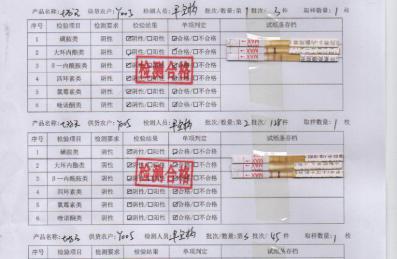 产品名称: 供货农户: Y005 检测人员: 批次/数量:第1批次: 件 取样数量: 1 枚
序号 检验项目 检测要求 检验结果 单项判定 试纸条存档
1 磺胺类 阴性 ☑阴性/□阳性 ☑合格/□不合格
2 大环内酯类 阴性 ☑阴性/□阳性 ☑合格/□不合格
3 β一内酰胺类 阴性 ☑阴性/□阳性 ☑合格/□不合格
4 四环素类 阴性 ☑阴性/□阳性 ☑合格/□不合格
5 氯霉素类 阴性 ☑阴性/□阳性 ☑合格/□不合格
6 喹诺酮类 阴性 ☑阴性/□阳性 ☑合格/□不合格
检测合格
产品名称: 供货农户: Y005 检测人员: 批次/数量:第2批次: 128件 取样数量: 1 枚
序号 检验项目 检测要求 检验结果 单项判定 试纸条存档
1 磺胺类 阴性 ☑阴性/□阳性 ☑合格/□不合格
2 大环内酯类 阴性 ☑阴性/□阳性 ☑合格/□不合格
3 β一内酰胺类 阴性 ☑阴性/□阳性 ☑合格/□不合格
4 四环素类 阴性 ☑阴性/□阳性 ☑合格/□不合格
5 氯霉素类 阴性 ☑阴性/□阳性 ☑合格/□不合格
6 喹诺酮类 阴性 ☑阴性/□阳性 ☑合格/□不合格
检测合格
产品名称: 供货农户: Y005 检测人员: 批次/数量:第3批次: 45件 取样数量: 1 枚
序号 检验项目 检测要求 检验结果 单项判定 试纸条存档